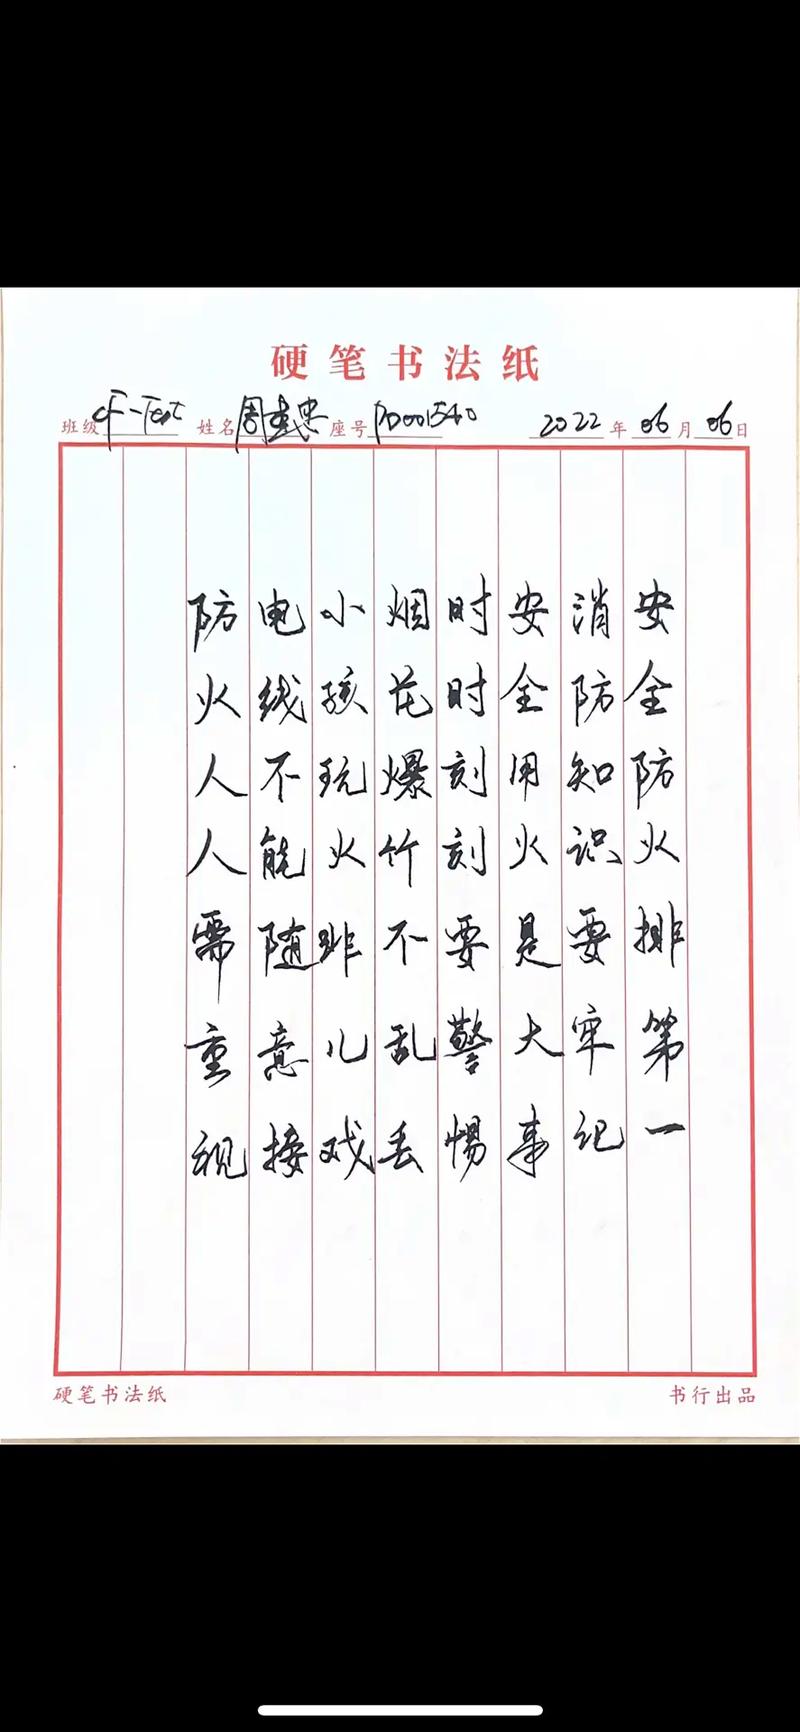 硬笔书法纸
班级 CF-Test 姓名 周 忠 座号 PD001540 2022年06月06日
安全防火排第一
消防知识要牢记
安全用火是大事
时时刻刻要警惕
烟花爆竹不乱丢
小孩玩火非儿戏
电线不能随意接
防火人人需重视
硬笔书法纸
书行出品